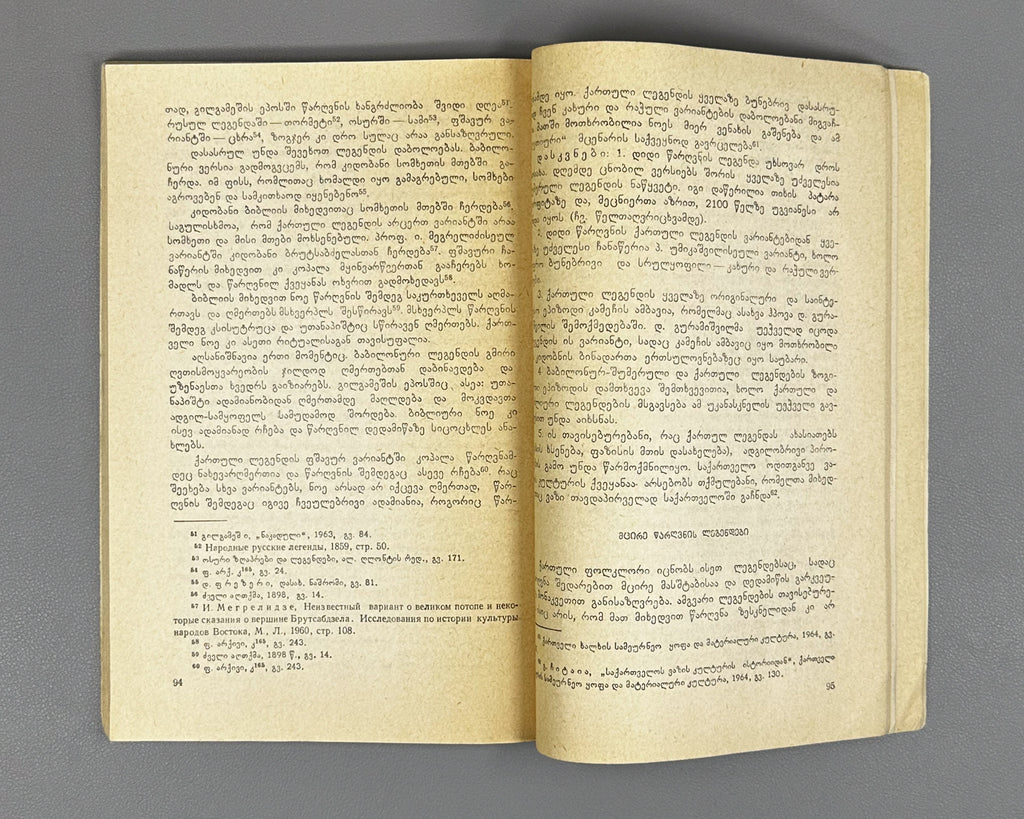 თად, გილგამეშის ეპოსში წარღვნის ხანგრძლიობა შვიდი დღეა⁵¹.
რუსულ ლეგენდაში — თორმეტი⁵², ოსურში — სამი⁵³, ფშაურ ვა-
რიანტში — ცხრა⁵⁴, ზოგჯერ კი დრო სულაც არაა განსაზღვრული.
დასასრულ უნდა შევეხოთ ლეგენდის დაბოლოებას. ბაბილო-
ნური ვერსია გადმოგვცემს, რომ კიდობანი სომხეთის მთებში გა-
ჩერდა. იმ ფისს, რომლითაც ხომალდი იყო გამაგრებული, სომხები
აგროვებენ და სამკითხაოდ იყენებენო⁵⁵.
კიდობანი ბიბლიის მიხედვითაც სომხეთის მთებში ჩერდება⁵⁶.
საგულისხმოა, რომ ქართული ლეგენდის არცერთ ვარიანტში არაა
სომხეთი და მისი მთები მოხსენებული. პროფ. ი. მეგრელიძისეულ
ვარიანტში კიდობანი ბრუტსაბძელასთან ჩერდება⁵⁷. ფშაური ჩა-
ნაწერის მიხედვით კი კოპალა მყინვარწვერთან გააჩერებს ხო-
მალდს და წარღვნილ ქვეყანას ოხვრით გადმოხედავს⁵⁸.
ბიბლიის მიხედვით ნოე წარღვნის შემდეგ საკურთხეველს აღმა-
რთავს და ღმერთებს მსხვერპლს შესწირავს⁵⁹. მსხვერპლს წარღვნის
შემდეგ ქსისუტრუცა და უთანაპიშტიც სწირავენ ღმერთებს. ქართ-
ველი ნოე კი ასეთი რიტუალისაგან თავისუფალია.
აღსანიშნავია ერთი მომენტიც: ბაბილონური ლეგენდის გმირი
ღვთისმოყვარეობის ჯილდოდ ღმერთებთან დაბინავდება და
უზენაესთა ხვედრს გაიზიარებს. გილგამეშის ეპოსშიც ასეა: უთა-
ნაპიშტი ადამიანობიდან ღმერთამდე მაღლდება და მოკვდავთა
ადგილ-სამყოფელს სამუდამოდ შორდება. ბიბლიური ნოე კი
ისევ ადამიანად რჩება და წარღვნილ დედამიწაზე სიცოცხლეს ანა-
ხლებს.
ქართული ლეგენდის ფშაურ ვარიანტში კოპალა წარღვნამ-
დეც ნახევარღმერთია და წარღვნის შემდეგაც ასევე რჩება⁶⁰. რაც
შეეხება სხვა ვარიანტებს, ნოე არსად არ იქცევა ღმერთად, წარ-
ღვნის შემდეგაც იგივე ჩვეულებრივი ადამიანია, როგორიც წარ-
⁵¹ გილგამეშ ი, „ნაკადული“, 1963, გვ. 84.
⁵² Народные русские легенды, 1859, стр. 50.
⁵³ ოსური ზღაპრები და ლეგენდები, ალ. ღლონტის რედ., გვ. 171.
⁵⁴ ფ. არქ. კ¹⁶⁵, გვ. 24.
⁵⁵ დ. ფრეზერი, დასახ. ნაშრომი, გვ. 81.
⁵⁶ ძველი აღთქმა, 1898, გვ. 14.
⁵⁷ И. Мегрелидзе, Неизвестный вариант о великом потопе и неко-
торые сказания о вершине Брутсабдзела. Исследования по истории культуры
народов Востока, М., Л., 1960, стр. 108.
⁵⁸ ფ. არქივი, კ¹⁶⁵, გვ. 243.
⁵⁹ ძველი აღთქმა, 1898 წ., გვ. 14.
⁶⁰ ფ. არქივი, კ¹⁶⁵, გვ. 243.
94
იყო. ქართული ლეგენდის ყველაზე ბუნებრივ დასასრუ-
ჩვენ კახური და რაჭული ვარიანტების დაბოლოებანი მიგვაჩ-
მათში მოთხრობილია ნოეს მიერ ვენახის გაშენება და ამ
მცენარის საქვეყნოდ გავრცელება⁶¹.
დასკვნები: 1. დიდი წარღვნის ლეგენდა უხსოვარ დროს
დღემდე ცნობილ ვერსიებს შორის ყველაზე უძველესია
ლეგენდის ნაწყვეტი. იგი დაწერილია თიხის პატარა
და, მეცნიერთა აზრით, 2100 წელზე უგვიანესი არ
იყოს (ჩვ. წელთაღრიცხვამდე).
2. დიდი წარღვნის ქართული ლეგენდის ვარიანტებიდან ყვე-
უძველესი ჩანაწერია პ. უმიკაშვილისეული ვარიანტი, ხოლო
ბუნებრივი და სრულყოფილი — კახური და რაჭული ვერ-
3. ქართული ლეგენდის ყველაზე ორიგინალური და საინტე-
ეპიზოდი კამეჩის ამბავია, რომელმაც ასახვა ჰპოვა დ. გურა-
შემოქმედებაში. დ. გურამიშვილმა უეჭველად იცოდა
ის ვარიანტი, სადაც კამეჩის ამბავიც იყო მოთხრობილი
კიდობნის ბინადართა ერთსულოვნებაზეც იყო საუბარი.
4. ბაბილონურ-შუმერული და ქართული ლეგენდების ზოგი-
ეპიზოდის დამთხვევა შემთხვევითია, ხოლო ქართული და
ლეგენდების მსგავსება ამ უკანასკნელის უეჭველი გავ-
უნდა აიხსნას.
5. ის თავისებურებანი, რაც ქართულ ლეგენდას ახასიათებს
ხსენება, ფაზისის მთის დასახელება), ადგილობრივ პირო-
გამო უნდა წარმოქმნილიყო. საქართველო ოდითგანვე ვა-
კულტურის ქვეყანაა. არსებობს თქმულებანი, რომელთა მიხედ-
ვაზი თავდაპირველად საქართველოში გაჩნდა⁶².
მცირე წარღვნის ლეგენდები
ქართული ფოლკლორი იცნობს ისეთ ლეგენდებსაც, სადაც
შედარებით მცირე მასშტაბისაა და დედამიწის გარკვეუ-
მონაკვეთით განისაზღვრება. ამგვარი ლეგენდების თავისებურე-
არის, რომ მათ მიხედვით წარღვნა ზესკნელიდან კი არ
⁶¹ ქართველი ხალხის სამეურნეო ყოფა და მატერიალური კულტურა, 1964, გვ.
ჩიტაია, „საქართველოს ვაზის კულტურის ისტორიიდან“, ქართველი
სამეურნეო ყოფა და მატერიალური კულტურა, 1964, გვ. 130.
95